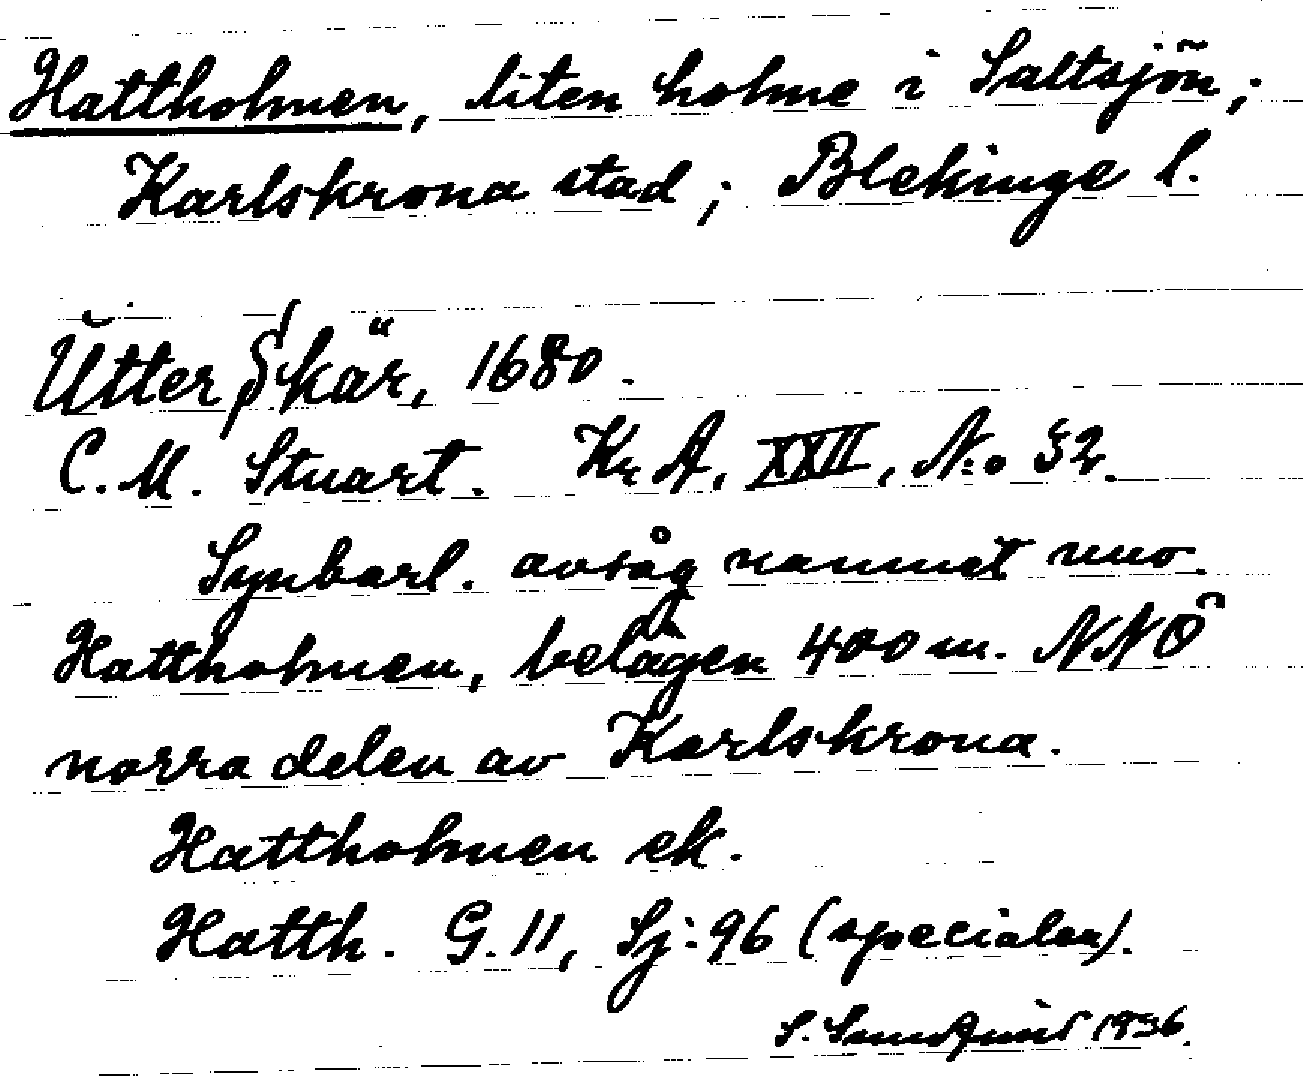 Hattholmen, liten holme i Saltsjön;
Karlskrona stad; Blekinge l.
Utter Skär, 1680.
C. M. Stuart. Kr. A, XXII, N:o 32.
Synbarl. avsåg namnet nuv.
Hattholmen, belägen 400 m. NNÖ
norra delen av Karlskrona.
Hattholmen ek.
Hatth. G. 11, Sj: 96 (specialen).
S. 1936.